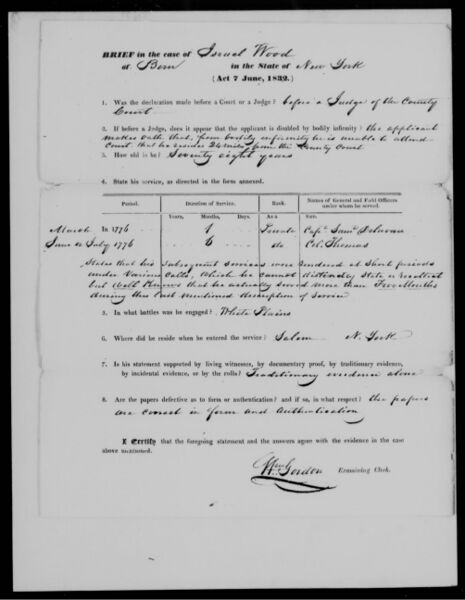 BRIEF in the case of Israel Wood
of Bern in the State of New York
(Act 7 June, 1832.)
1. Was the declaration made before a Court or a Judge? before a Judge of the County
Court
2. If before a Judge, does it appear that the applicant is disabled by bodily infirmity? the applicant
makes oath that, from bodily infirmity he is unable to attend
Court. that he resides 24 miles from the County Court
3. How old is he? Seventy eight years
4. State his service, as directed in the form annexed.
Period. Duration of Service. Rank. Names of General and Field Officers under whom he served.
Years. Months. Days. As a
March In 1776 1 Private Capt. Saml. Delavan
June & July 1776 6 do Col. Thomas
States that his subsequent services were rendered at Short periods
under Various Calls, which he cannot distinctly State or recollect
but Well Knows that he actually served more than Months
during this last mentioned description of Service
5. In what battles was he engaged? White Plains
6. Where did he reside when he entered the service? Salem N. York
7. Is his statement supported by living witnesses, by documentary proof, by traditionary evidence,
by incidental evidence, or by the rolls? Traditionary evidence alone
8. Are the papers defective as to form or authentication? and if so, in what respect? the papers
are correct in form and authentication
I Certify that the foregoing statement and the answers agree with the evidence in the case
above mentioned.
Gordon Examining Clerk.